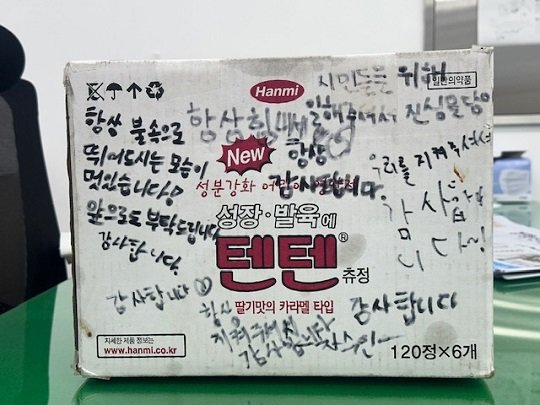 Hanmi
일반의약품
시민들을 위해
항상 힘내세요
일해주셔서
진심을 담아
항상 불속으로
뛰어드시는 모습이
멋있습니다!
앞으로도 부탁드립니다
감사합니다.
New
항상
감사합니다.
우리를 지켜주셔서
감사합
니다~!
성분강화
성장·발육에
텐텐® 츄정
딸기맛의 카라멜 타입
감사합니다♡
항상
지켜주셔서
감사합니다
감사합니다
자세한 제품 정보는
www.hanmi.co.kr
120정×6개